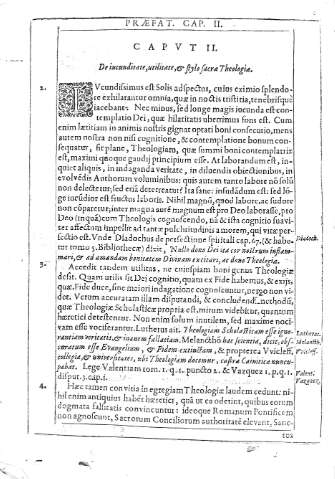 PRÆFAT. CAP. II.
CAPVT II.
De iucunditate, utilitate, & stylo sacræ Theologiæ.
2.
IVcundissimus est Solis adspectus, cuius eximio splendo-
re exhilarantur omnia, quæ in noctis tristitia, tenebrisque
iacebant. Nec minus, sed longe magis iocunda est con-
templatio Dei, quæ hilaritatis uberrimus fons est. Cum
enim lætitiam in animis nostris gignat optati boni consecutio, mens
autem nostra non nisi cognitione, & contemplatione bonum con-
sequatur, fit plane, Theologiam, quæ summi boni contemplatrix
est, maximi quoque gaudij principium esse. At laborandum est, in-
quiet aliquis, in indaganda veritate, in diluendis obiectionibus, in
evolvendis Authorum voluminibus: quis autem tanto labore nō solū
non delectetur, sed etiā deterreatur? Ita sane: insudādum est, sed lō-
ge iocūdior est fructus laboris. Nihil magnū, quod labore, ac sudore
non cōparetur; inter magna aute magnum est pro Deo laborasse, pro
Deo (inquā) cum Theologis cognoscendo, nā & ista cognitio suavi-
ter affectum impellit ad tantæ pulchritudinis amorem, qui vitæ per-
fectio est. Vnde Diadochus de perfectione spirituali cap. 67. (& habe-
tur tomo 5. Bibliothecæ) dixit, Nullo dono Dei ita cor nostrum inflam-
mari, & ad amandam bonitatem Divinam excitari, ac dono Theologiæ.
Diadoch.
3.
Accedit tandem utilitas, ne cuispiam honi genus Theologiæ
desit. Quam utilis sit Dei cognitio, quam ex Fide habemus, & ex ijs,
quæ Fide duce, sine maiori indagatione cognoscuntur, nego non vi-
det. Verum accuratam illam disputandi, & concludendi methodū,
quæ Theologiæ Scholasticæ propria est, mirum videbitur, quantum
hæretici detestentur. Non enim solum inutilem, sed maxime noci-
vam esse vociferantur. Lutherus ait. Theologiam Scholasticam esse igno-
rantiam veritatis, & inanem fallaciam. Melancthō hac scientia, dicit, obs-
curatum esse Evangelium, & Fidem extinctam, & propterea Vvicleff.
collegia, & universitates, ubi Theologiam docemur, castra Cainitica nuncu-
pabat. Lege Valentiam tom. 1. q. 1. puncto 2. & Vazquez 1. p. q. 1.
disput. 3. cap. 1.
Lutherus.
Melancth.
Vvicleff.
Valent.
Vazquez.
4.
Hæc tamen convitia in egregiam Theologiæ laudem cedunt: ni-
hil enim antiquius habēt hæretici, quā ut ea odetint, quibus eorum
dogmata falsitatis convincuntur: ideoque Romanum Pontificem
non agnoscunt, Sacrorum Conciliorum authoritatē elevant, Sanc-
tos